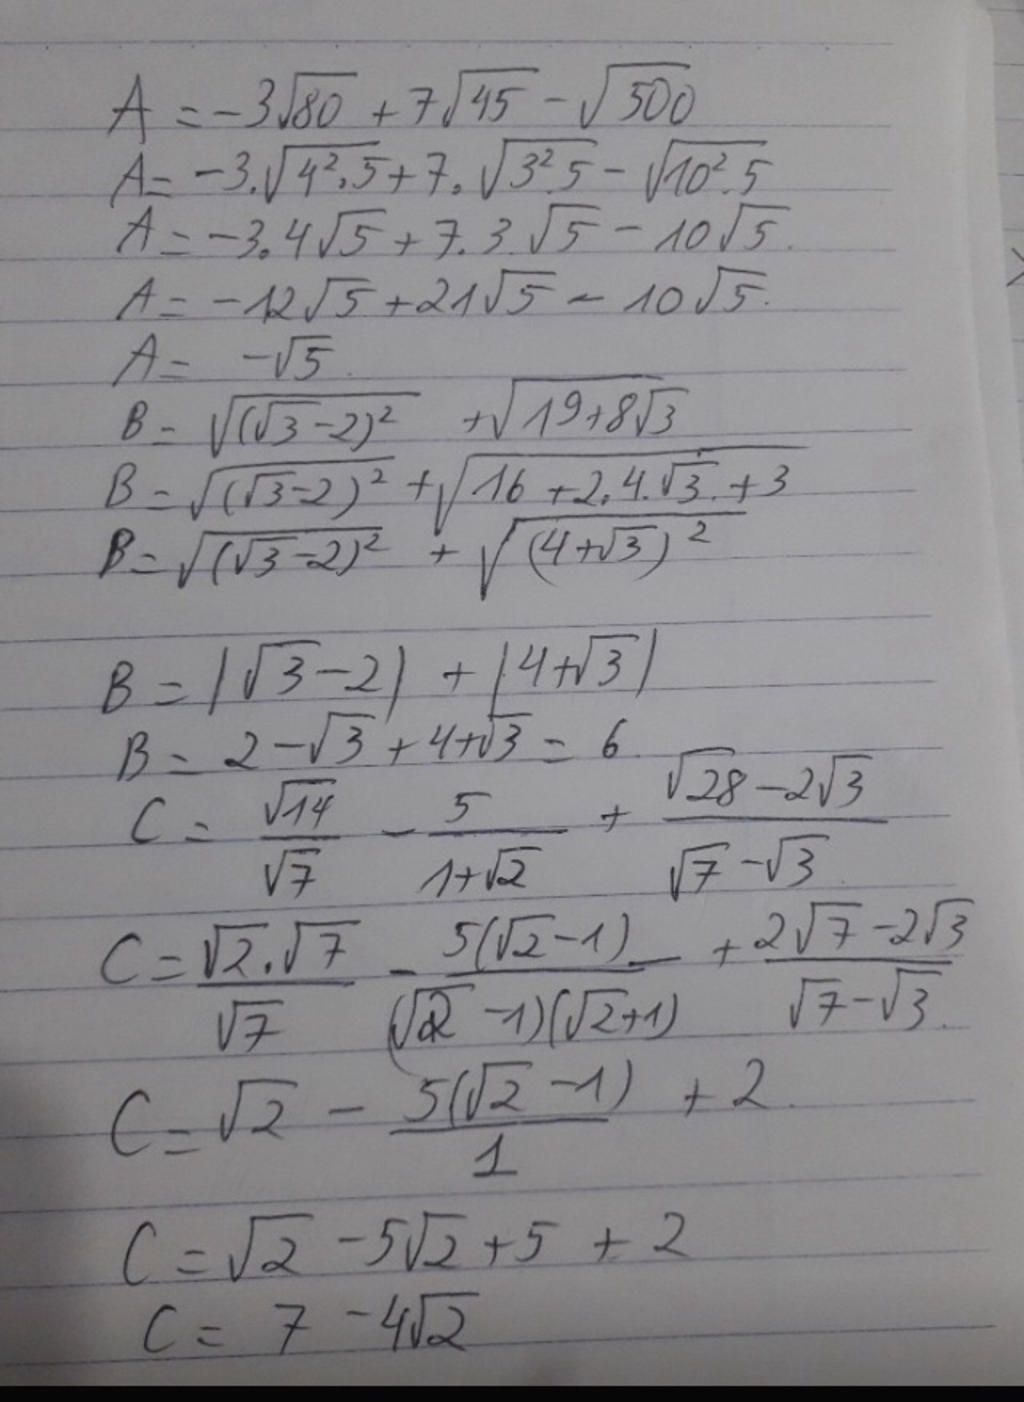 A = -3√80 + 7√45 - √500
A = -3.√4².5 + 7.√3².5 - √10².5
A = -3.4√5 + 7.3.√5 - 10√5.
A = -12√5 + 21√5 - 10√5.
A = -√5.
B = √(√3-2)² + √19+8√3
B = √(√3-2)² + √16+2.4.√3.+3
B = √(√3-2)² + √(4+√3)²
B = |√3-2| + |4+√3|
B = 2-√3+4+√3 = 6
C = √14/√7 - 5/1+√2 + √28-2√3/√7-√3
C = √2.√7/√7 - 5(√2-1)/(√2-1)(√2+1) + 2√7-2√3/√7-√3.
C = √2 - 5(√2-1)/1 + 2.
C = √2 - 5√2 + 5 + 2
C = 7 - 4√2